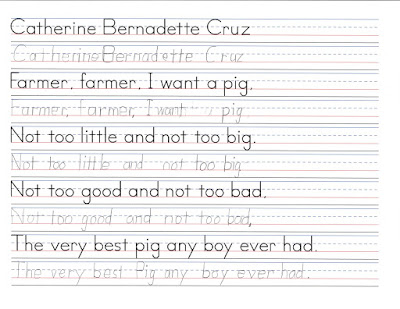 Catherine Bernadette Cruz
Catherine Bernadette Cruz
Farmer, farmer, I want a pig,
Farmer, farmer, I want a pig
Not too little and not too big.
Not too little and not too big
Not too good and not too bad.
Not too good and not too bad,
The very best pig any boy ever had.
The very best Pig any boy ever had.